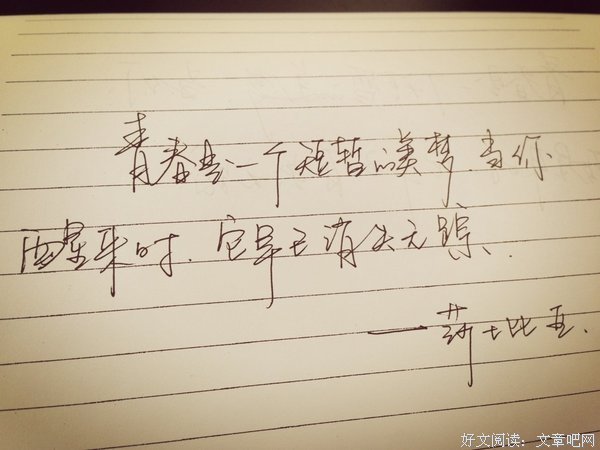 青春是一个短暂的美梦,当你
醒来时,它早已消失无踪.
——莎士比亚.
好文阅读:文章吧网